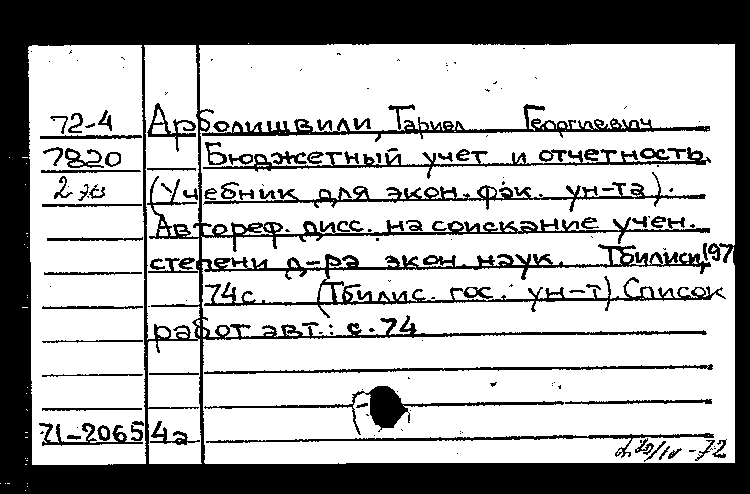 72-4 Арболишвили, Тариел Георгиевич
7820 Бюджетный учет и отчетность.
2 экз (Учебник для экон. фак. ун-та).
Автореф. дисс. на соискание учен.
степени д-ра экон. наук. Тбилиси, 197
74с. (Тбилис. гос. ун-т). Список
работ авт.: с. 74
71-20654а